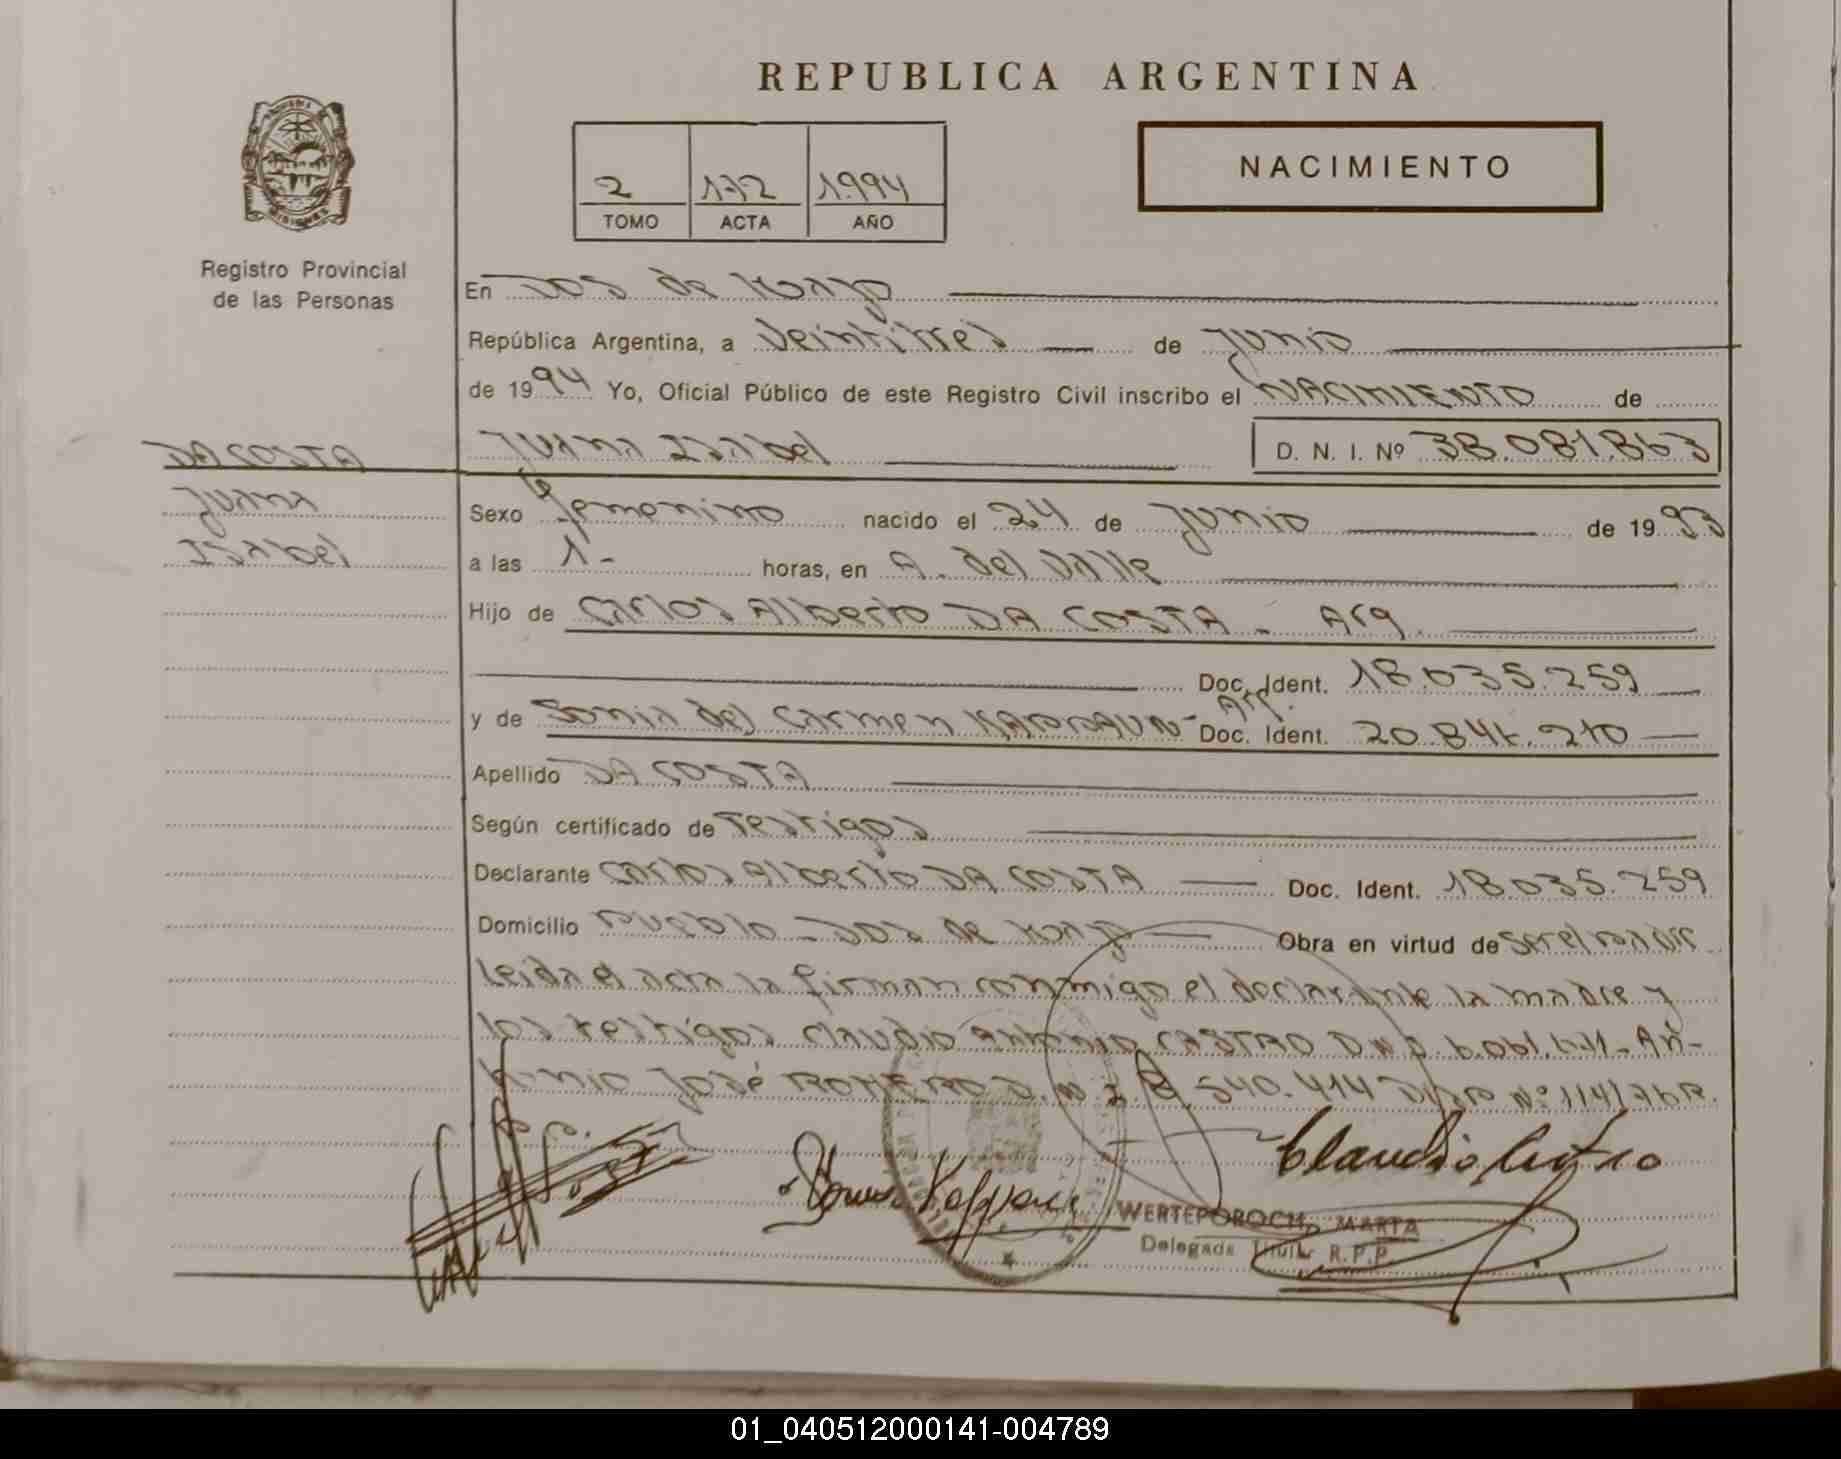 REPUBLICA ARGENTINA
NACIMIENTO
2 172 1994
TOMO ACTA AÑO
MISIONES
Registro Provincial
de las Personas
En Dos de Mayo
República Argentina, a veintitres de Junio
de 1994 Yo, Oficial Público de este Registro Civil inscribo el NACIMIENTO de
DA COSTA
Juana Isabel D. N. I. Nº 38.081.863
Juana
Isabel
Sexo femenino nacido el 24 de Junio de 1993
a las 1- horas, en A. del Valle
Hijo de Carlos Alberto DA COSTA - Arg.
Doc. Ident. 18.035.259
y de Sonia del Carmen - Arg. Doc. Ident.
Apellido DA COSTA
Según certificado de Testigos
Declarante Carlos Alberto DA COSTA Doc. Ident. 18.035.259
Domicilio Pueblo - Dos de Mayo Obra en virtud de ser el padre
Leida el acta la firman conmigo el declarante la madre y
los testigos Claudio Antonio CASTRO D.N.I. - An-
tonio José ROMERO D.N.I. 540.414 Dispo Nº 114/76 R.
Claudio Castro
WERTEPOROCH, MARTA
Delegada Titular R.P.P.
01_040512000141-004789